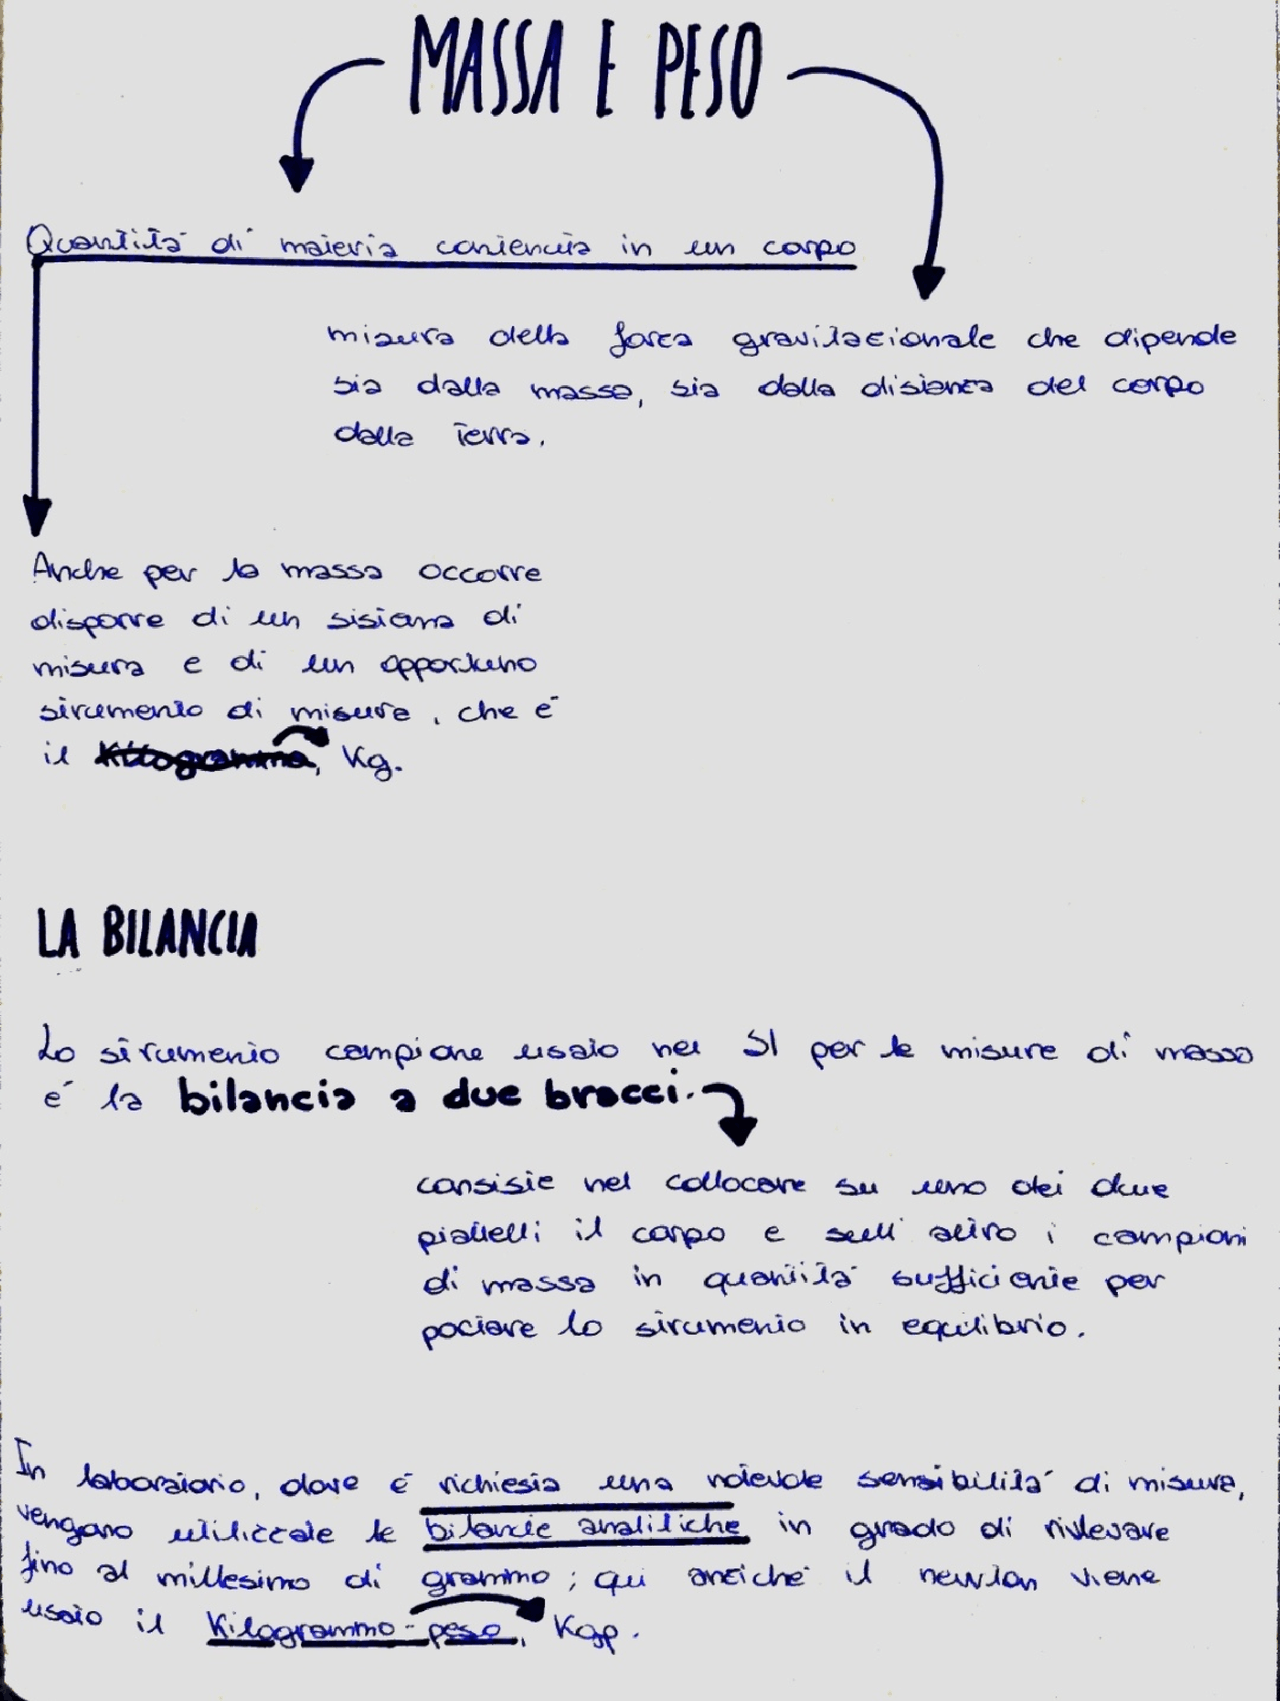 MASSA E PESO
Quantità di materia contenuta in un corpo
misura della forza gravitazionale che dipende
sia dalla massa, sia dalla distanza del corpo
dalla Terra.
Anche per la massa occorre
disporre di un sistema di
misura e di un opportuno
strumento di misure, che è
il Kilogrammo, Kg.
LA BILANCIA
Lo strumento campione usato nel SI per le misure di massa
è la bilancia a due bracci.
consiste nel collocare su uno dei due
piattelli il corpo e sull'altro i campioni
di massa in quantità sufficiente per
portare lo strumento in equilibrio.
In laboratorio, dove è richiesta una notevole sensibilità di misura,
vengono utilizzate le bilancie analitiche in grado di rivlevare
fino al millesimo di grammo; qui anziché il newton viene
usato il Kilogrammo-peso, Kgp.